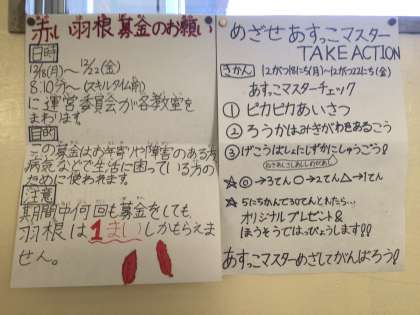 赤い羽根募金のお願い
日時
12/18(月)〜12/22(金)
8:10分〜(スキルタイム前)
に運営委員会が各教室を
まわります
目的
この募金はお年寄りや障害のある方
病気などで生活に困っている方の
ために使われます。
注意
期間中何回も募金をしても
羽根は1まいしかもらえま
せん。
めざせあすっこマスター
TAKE ACTION
きかん 12がつ18にち(月)〜12がつ22にち(金)
あすっこマスターチェック
①ピカピカあいさつ
②ろうかはみぎがわをあるこう
③げこうはしょにしずかにしゅうごう!
☆◎→3てん○→2てん△→1てん
☆5にちかんで30てんとれたら…
オリジナルプレゼント&
ほうそうではっぴょうします!!
あすっこマスターめざしてがんばろう!